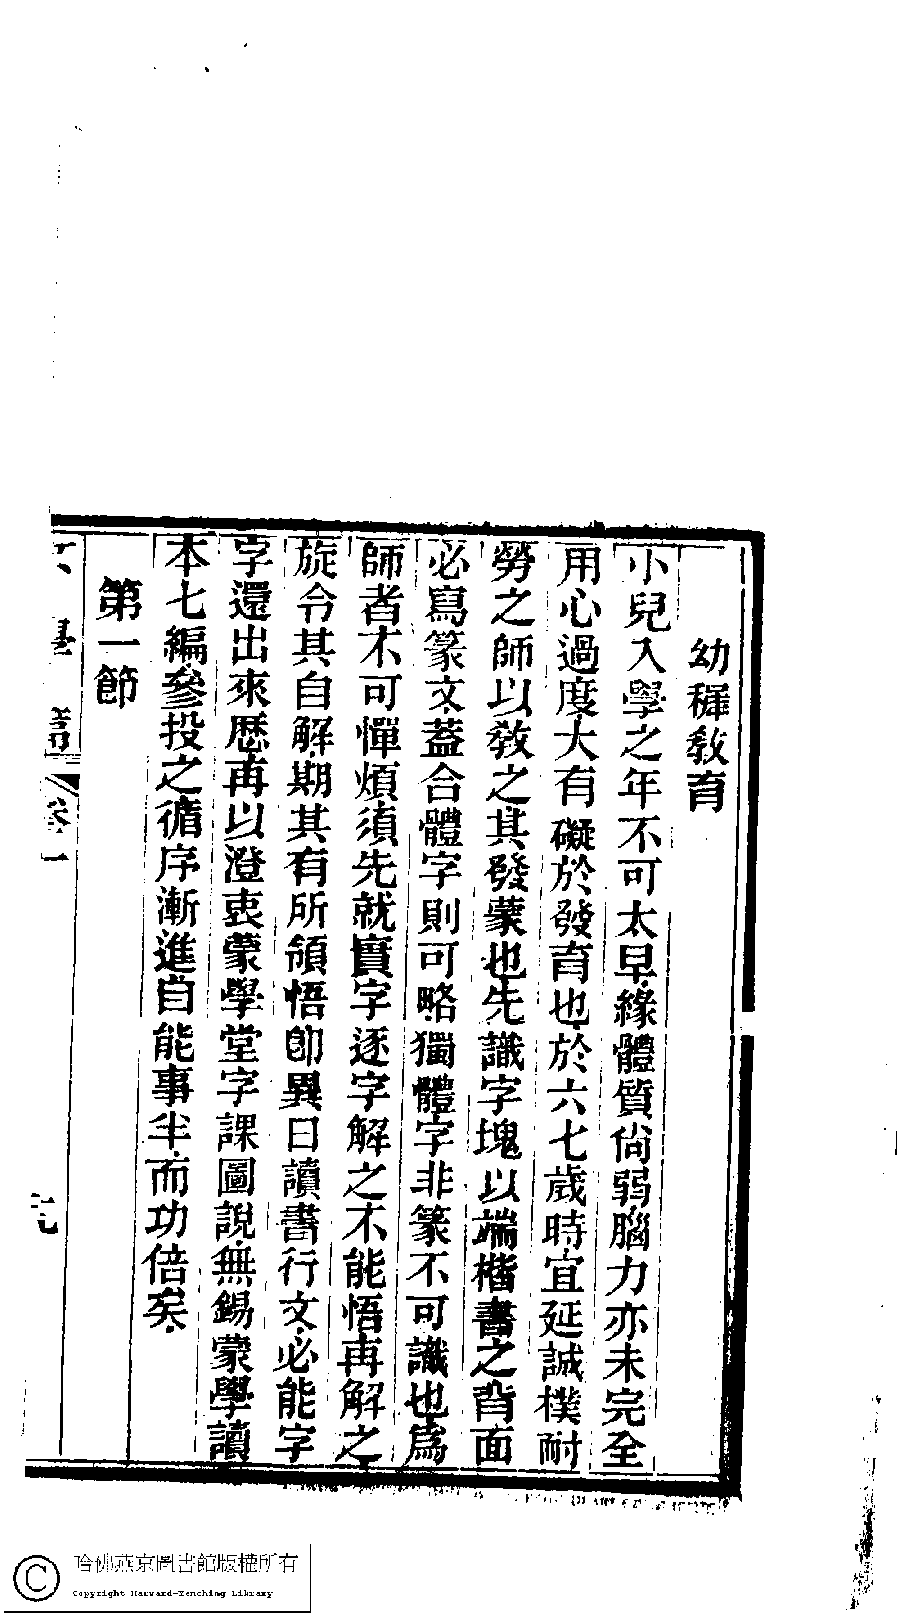 幼穉教育
小兒入學之年不可太早緣體質尙弱腦力亦未完全
用心過度大有礙於發育也於六七歲時宜延誠樸耐
勞之師以教之其發蒙也先識字塊以端楷書之背面
必寫篆文蓋合體字則可略獨體字非篆不可識也爲
師者不可憚煩須先就實字逐字解之不能悟再解之
旋令其自解期其有所領悟卽異日讀書行文必能字
字還出來歷再以澄衷蒙學堂字課圖說無錫蒙學讀
本七編參投之循序漸進自能事半而功倍矣
第一節
篇 卷一
哈佛燕京圖書館版權所有
Copyright Harvard-Yenching Library